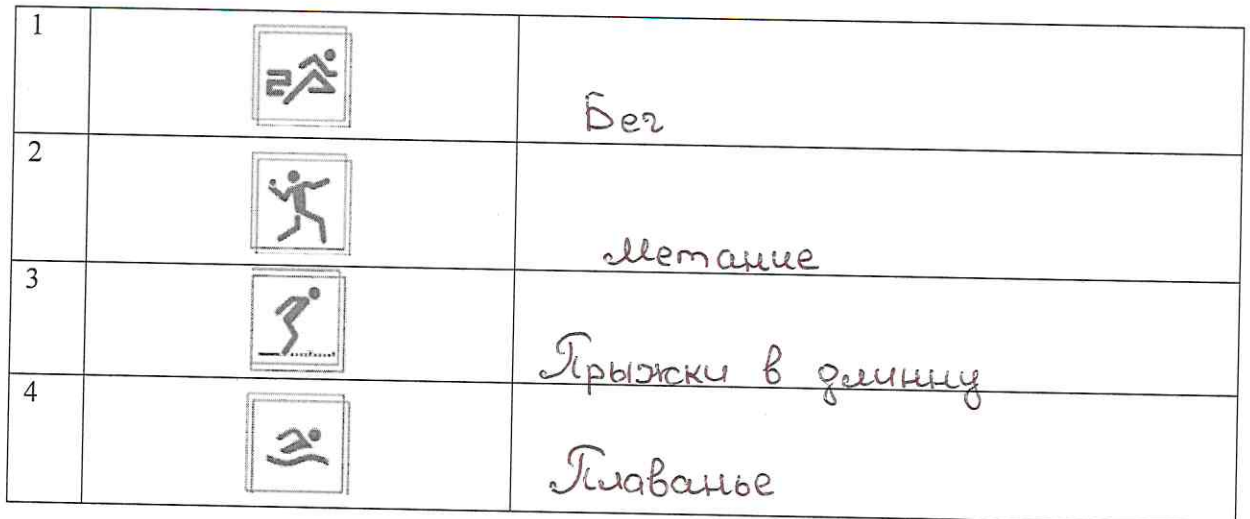 1
Бег
2
Метание
3
Прыжки в длинну
4
Плаванье